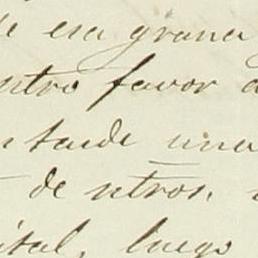 e era grana
ntro favor a
n tarde una
de ntros.
ital, luego